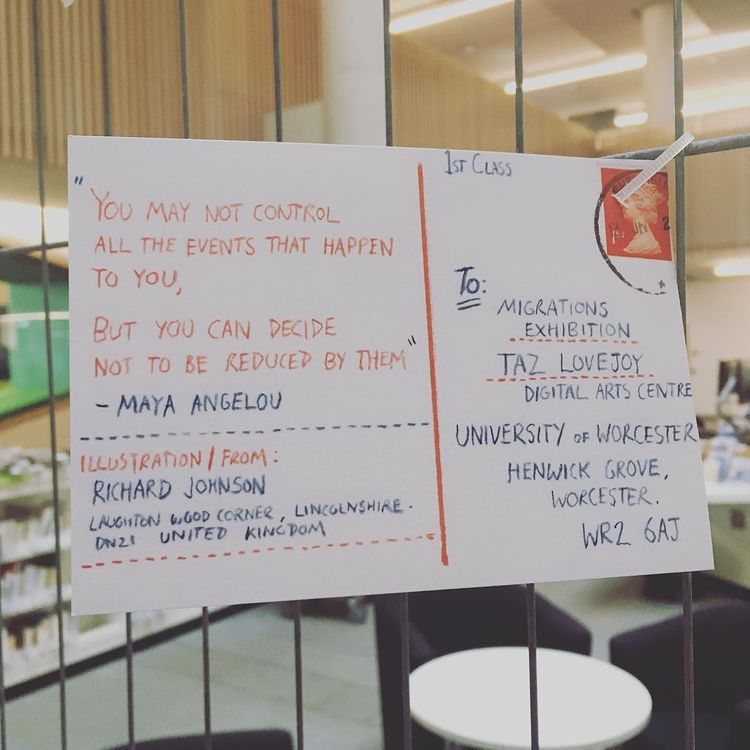 "YOU MAY NOT CONTROL
ALL THE EVENTS THAT HAPPEN
TO YOU,
BUT YOU CAN DECIDE
NOT TO BE REDUCED BY THEM"
- MAYA ANGELOU
ILLUSTRATION / FROM:
RICHARD JOHNSON
LAUGHTON WOOD CORNER, LINCOLNSHIRE.
DN21 UNITED KINGDOM
1ST CLASS
1st
To:
MIGRATIONS
EXHIBITION
TAZ LOVEJOY
DIGITAL ARTS CENTRE
UNIVERSITY OF WORCESTER
HENWICK GROVE,
WORCESTER.
WR2 6AJ